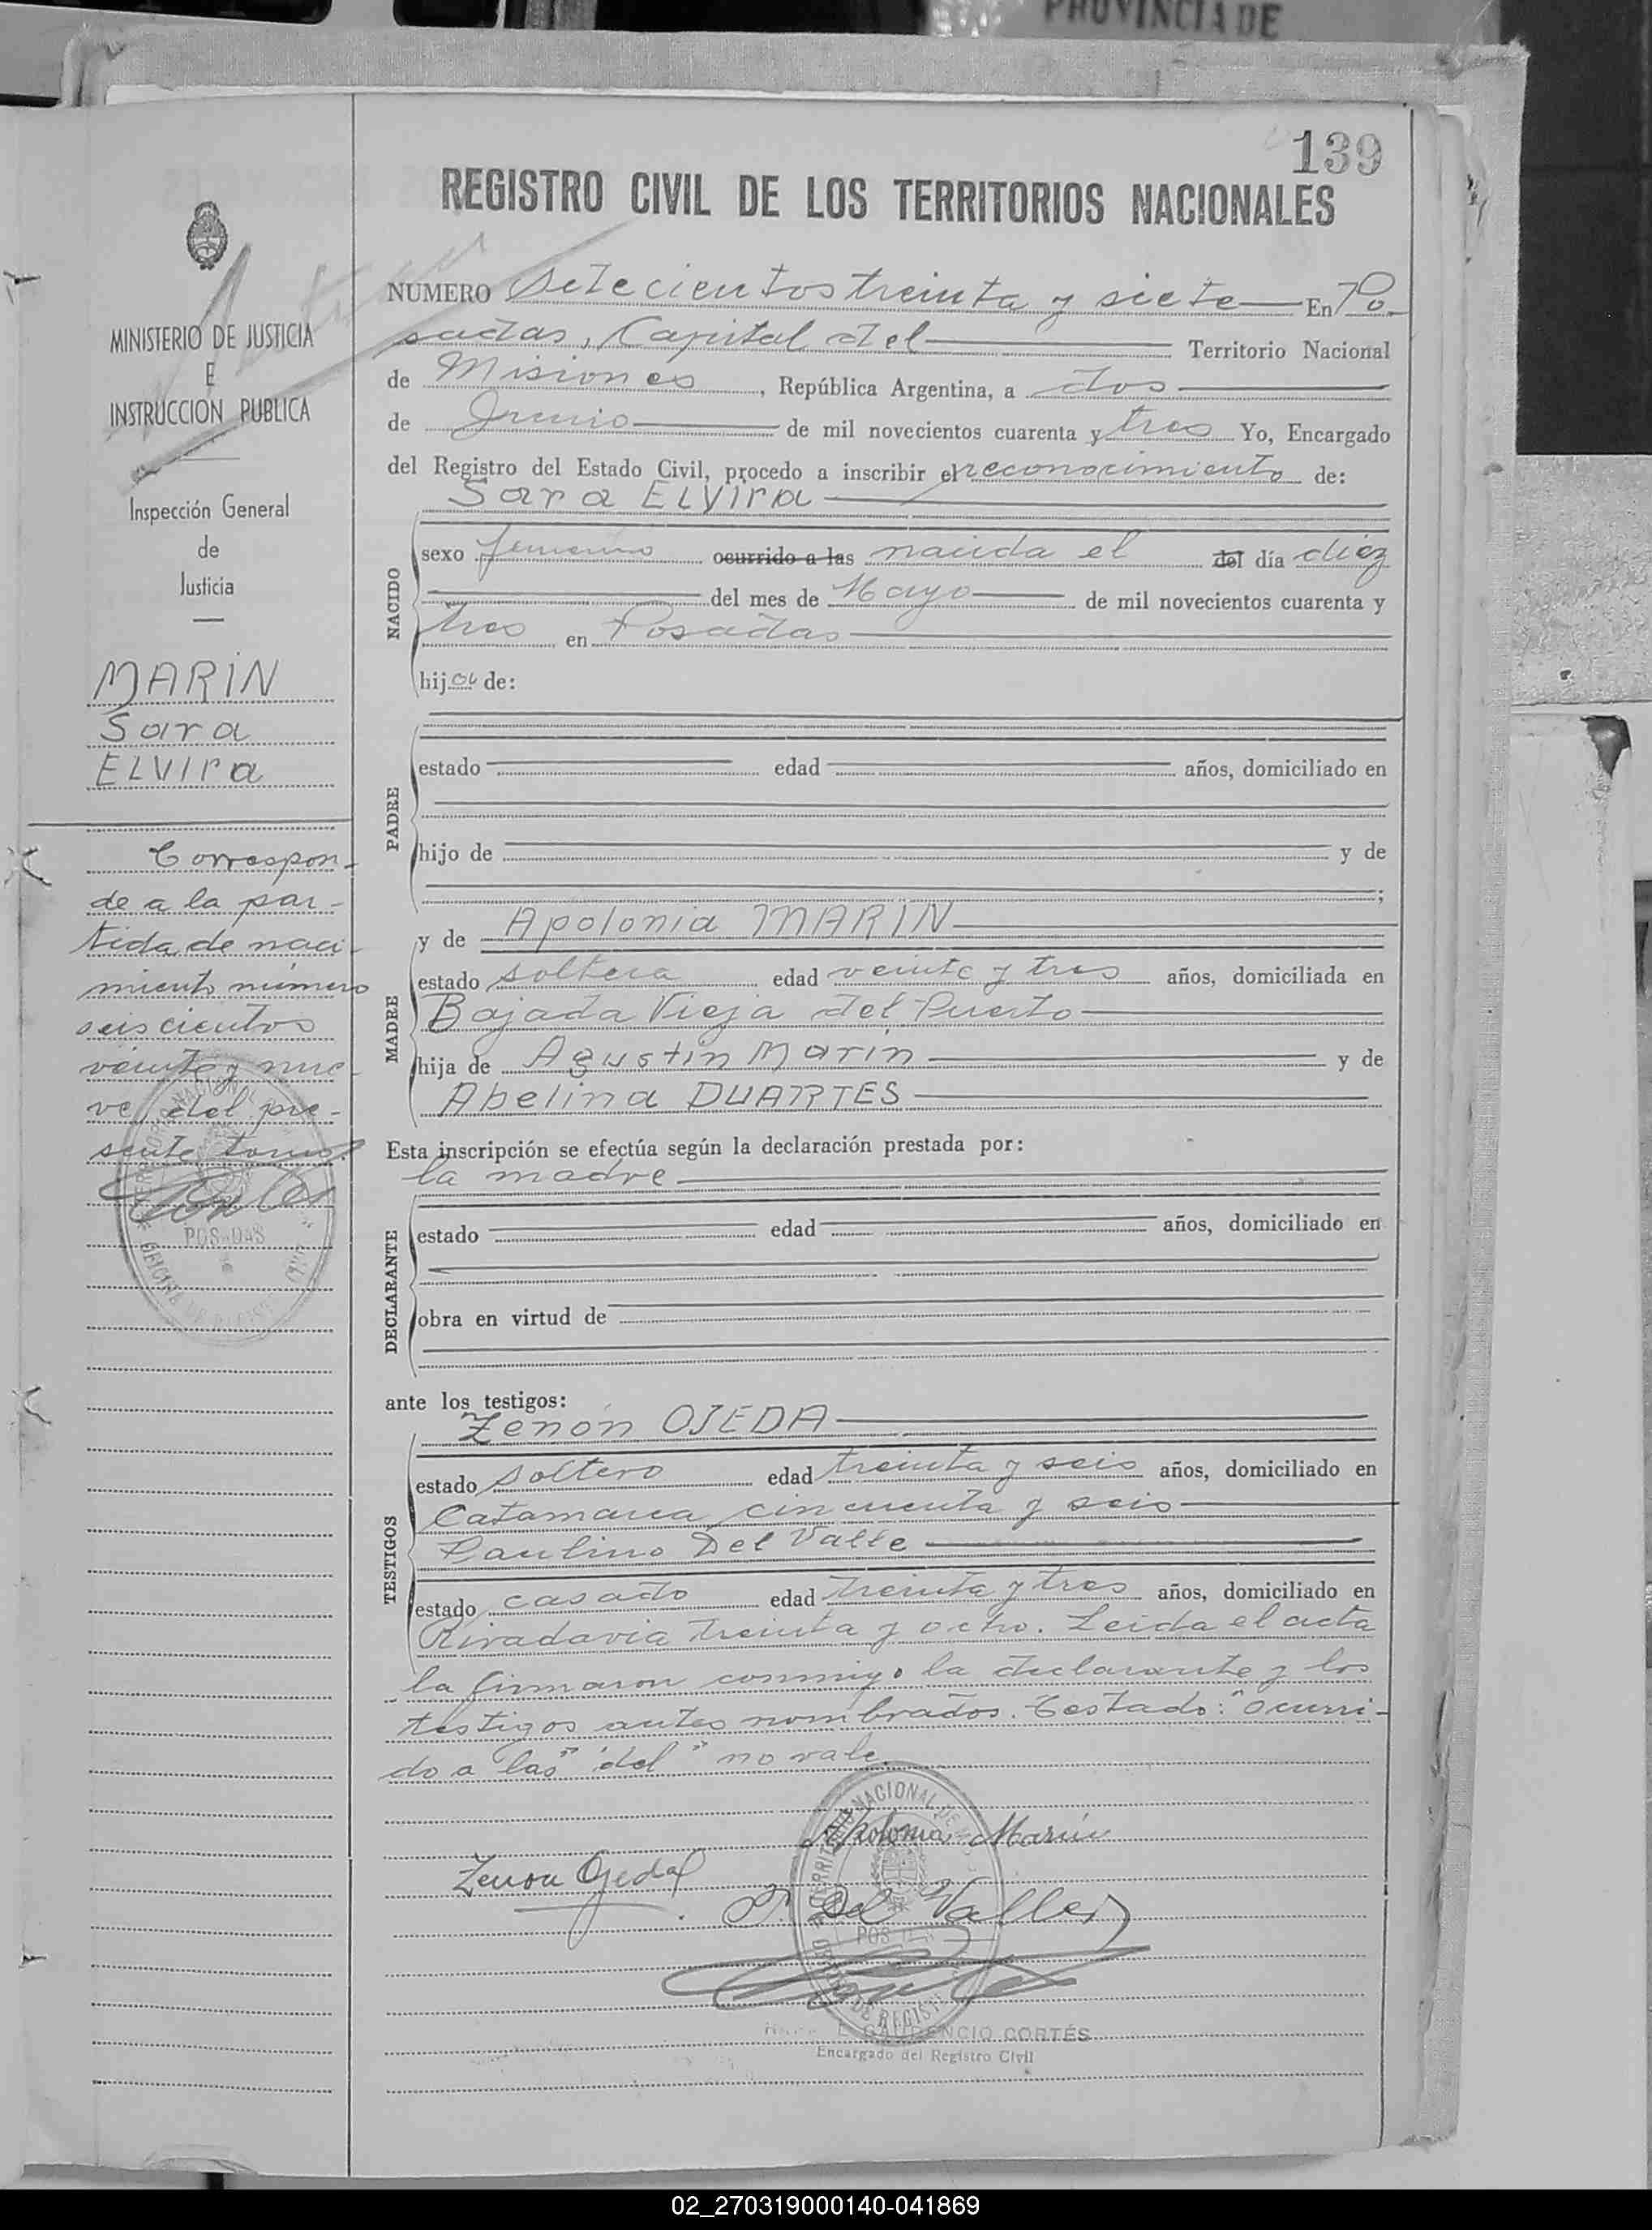 PROVINCIA DE
139
REGISTRO CIVIL DE LOS TERRITORIOS NACIONALES
MINISTERIO DE JUSTICIA
E
INSTRUCCION PUBLICA
Inspección General
de
Justicia
MARIN
Sara
ELVIRA
Correspon-
de a la par-
tida de naci-
miento número
seiscientos
veinte y nue-
ve, del pre-
sente tomo.
POSADAS
NUMERO setecientos treinta y siete En Po-
sadas, Capital del Territorio Nacional
de Misiones, República Argentina, a dos
de Junio de mil novecientos cuarenta y tres Yo, Encargado
del Registro del Estado Civil, procedo a inscribir el reconocimiento de:
Sara ELVIRA
NACIDO
sexo femenino ocurrido a las nacida el del día diez
del mes de Mayo de mil novecientos cuarenta y
tres en Posadas
hija de:
PADRE
estado edad años, domiciliado en
hijo de y de
;
MADRE
y de Apolonia MARIN
estado soltera edad veinte y tres años, domiciliada en
Bajada Vieja del Puerto
hija de Agustin Marin y de
Abelina DUARTES
Esta inscripción se efectúa según la declaración prestada por:
la madre
DECLARANTE
estado edad años, domiciliado en
obra en virtud de
ante los testigos:
TESTIGOS
Zenón OJEDA
estado soltero edad treinta y seis años, domiciliado en
Catamarca cincuenta y seis
Paulino Del Valle
estado casado edad treinta y tres años, domiciliado en
Rivadavia treinta y ocho. Leida el acta
la firmaron conmigo la declarante y los
testigos antes nombrados. Testado: "ocurri-
do a las" "del" no vale.
Apolonia Marin
Zenon Ojeda
P. Del Valle
GAUDENCIO CORTÉS
Encargado del Registro Civil
02_270319000140-041869